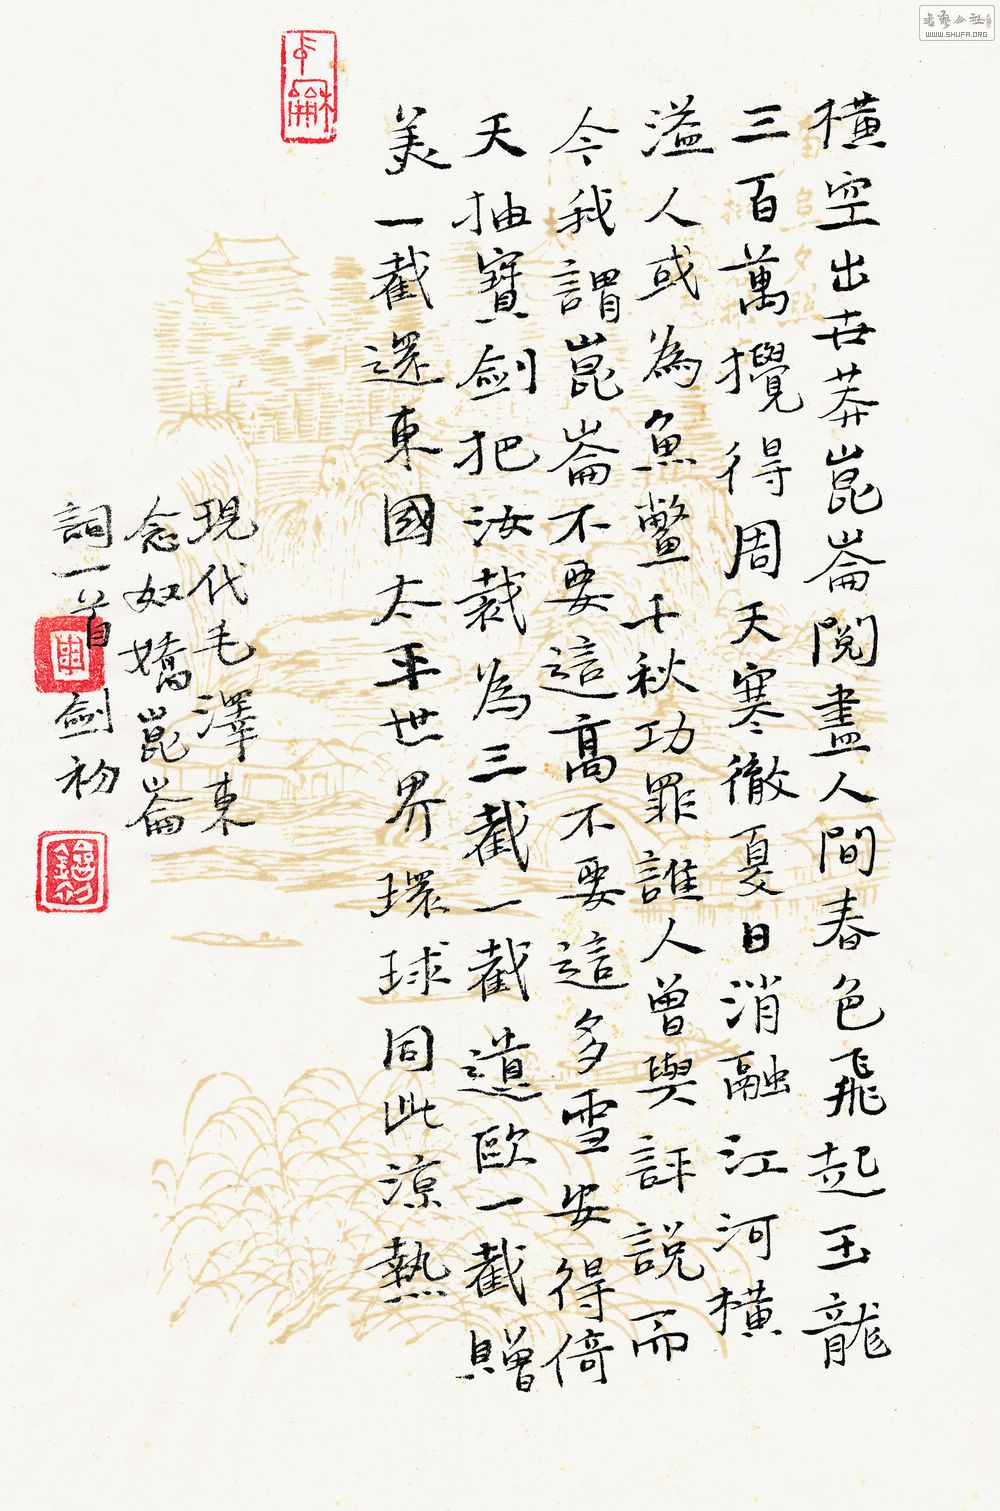 橫空出世莽崑崙閱盡人間春色飛起玉龍
三百萬攪得周天寒徹夏日消融江河橫
溢人或為魚鱉千秋功罪誰人曾與評說而
今我謂崑崙不要這高不要這多雪安得倚
天抽寶劍把汝裁為三截一截遺歐一截贈
美一截還東國太平世界環球同此涼熱
現代毛澤東
念奴嬌崑崙
詞一首 劍初
書藝公社
WWW.SHUFA.ORG